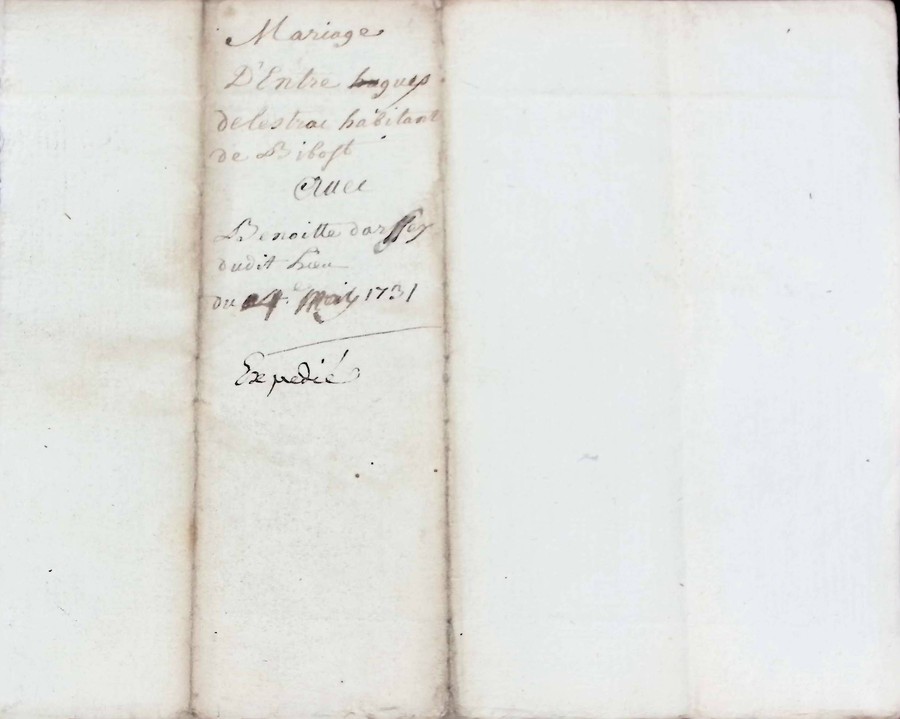 Mariage
D'Entre hugues
delestrac habitant
de Bibost
avec
Benoitte dargsey
dudit Lieu
du 4e. May 1731
Expedié